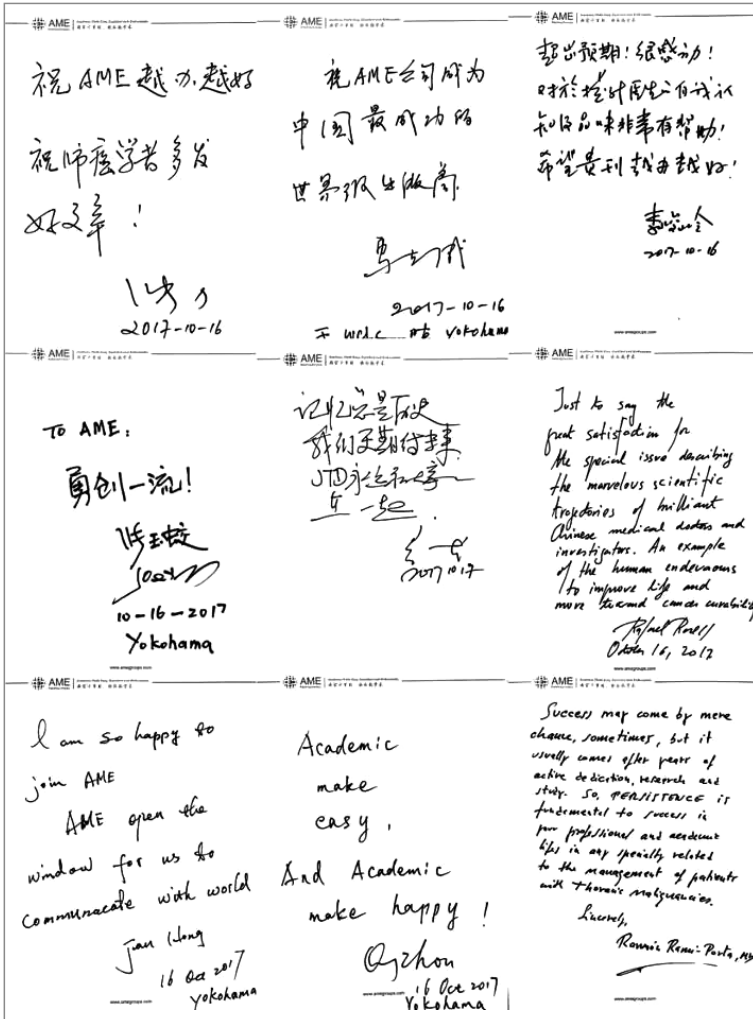 AME
祝AME越办越好
祝肺癌学者多发
好文章！
2017-10-16
AME
祝AME公司成为
中国最成功的
世界级出版商
2017-10-16
于 WCLC 于 Yokohama
超出预期！很感动！
对於
知及品味非常有帮助！
希望贵刊越办越好！
2017-10-16
www.amegroups.com
AME
TO AME:
勇创一流！
10-16-2017
Yokohama
www.amegroups.com
AME
记忆总是历史
我们更期待未来
JTD永远和
在一起.
2017 10 17
AME
Just to say the
great satisfaction for
the special issue describing
the marvelous scientific
trajectories of brilliant
Chinese medical doctors and
investigators. An example
of the human endeavours
to improve life and
move toward cancer curability
Rafael Rosell
October 16, 2017
www.amegroups.com
AME
I am so happy to
join AME
AME open the
window for us to
communacate with world
16 Oct 2017
Yokohama
www.amegroups.com
AME
Academic
make
easy,
And Academic
make happy!
Qzhou
16 Oct 2017
Yokohama
www.amegroups.com
AME
Success may come by mere
chance, sometimes, but it
usually comes after years of
active dedication, research and
study. So, PERSISTENCE is
fundamental to success in
your professional and academic
life in any specialty related
to the management of patients
with thoracic malignancies.
Sincerely,
Ramón Rami-Porta, MD
www.amegroups.com